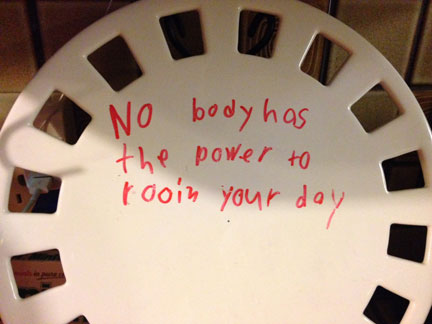 No body has
the power to
rooin your day